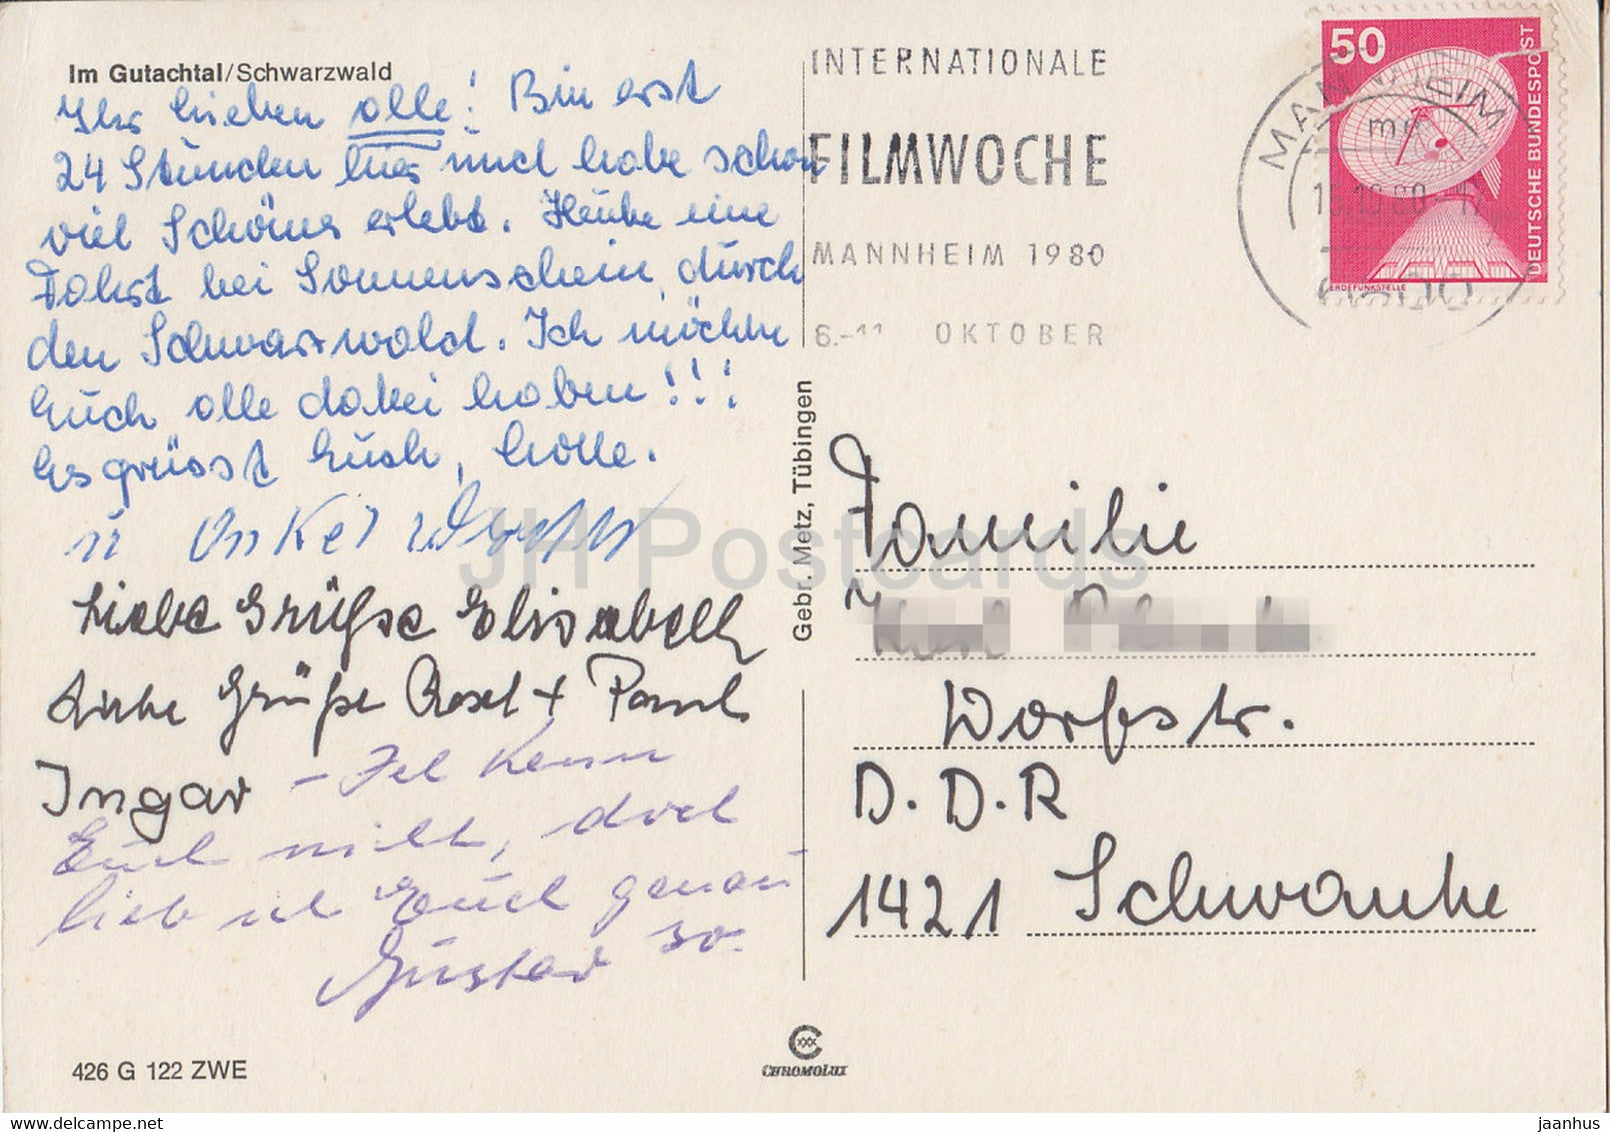 Im Gutachtal/Schwarzwald
Ihr lieben alle! Bin erst
24 Stunden hier und habe schon
viel Schönes erlebt. Heute eine
Fahrt bei Sonnenschein durch
den Schwarzwald. Ich möchte
Euch alle dabei haben!!!
Es grüsst Euch,
u Onkel
Liebe Grüße Elisabeth
Liebe Grüße Rosel + Paul
Ingar
– Ich kenn
Euch nicht, doch
lieb ich Euch genau
so.
Gustav
426 G 122 ZWE
Gebr. Metz, Tübingen
CHROMOLUX
INTERNATIONALE
FILMWOCHE
MANNHEIM 1980
6.-11 OKTOBER
MANNHEIM
50
DEUTSCHE BUNDESPOST
ERDEFUNKSTELLE
Familie
Dorfstr.
D.D.R
1421 Schwante
JH Postcards
jaanhus